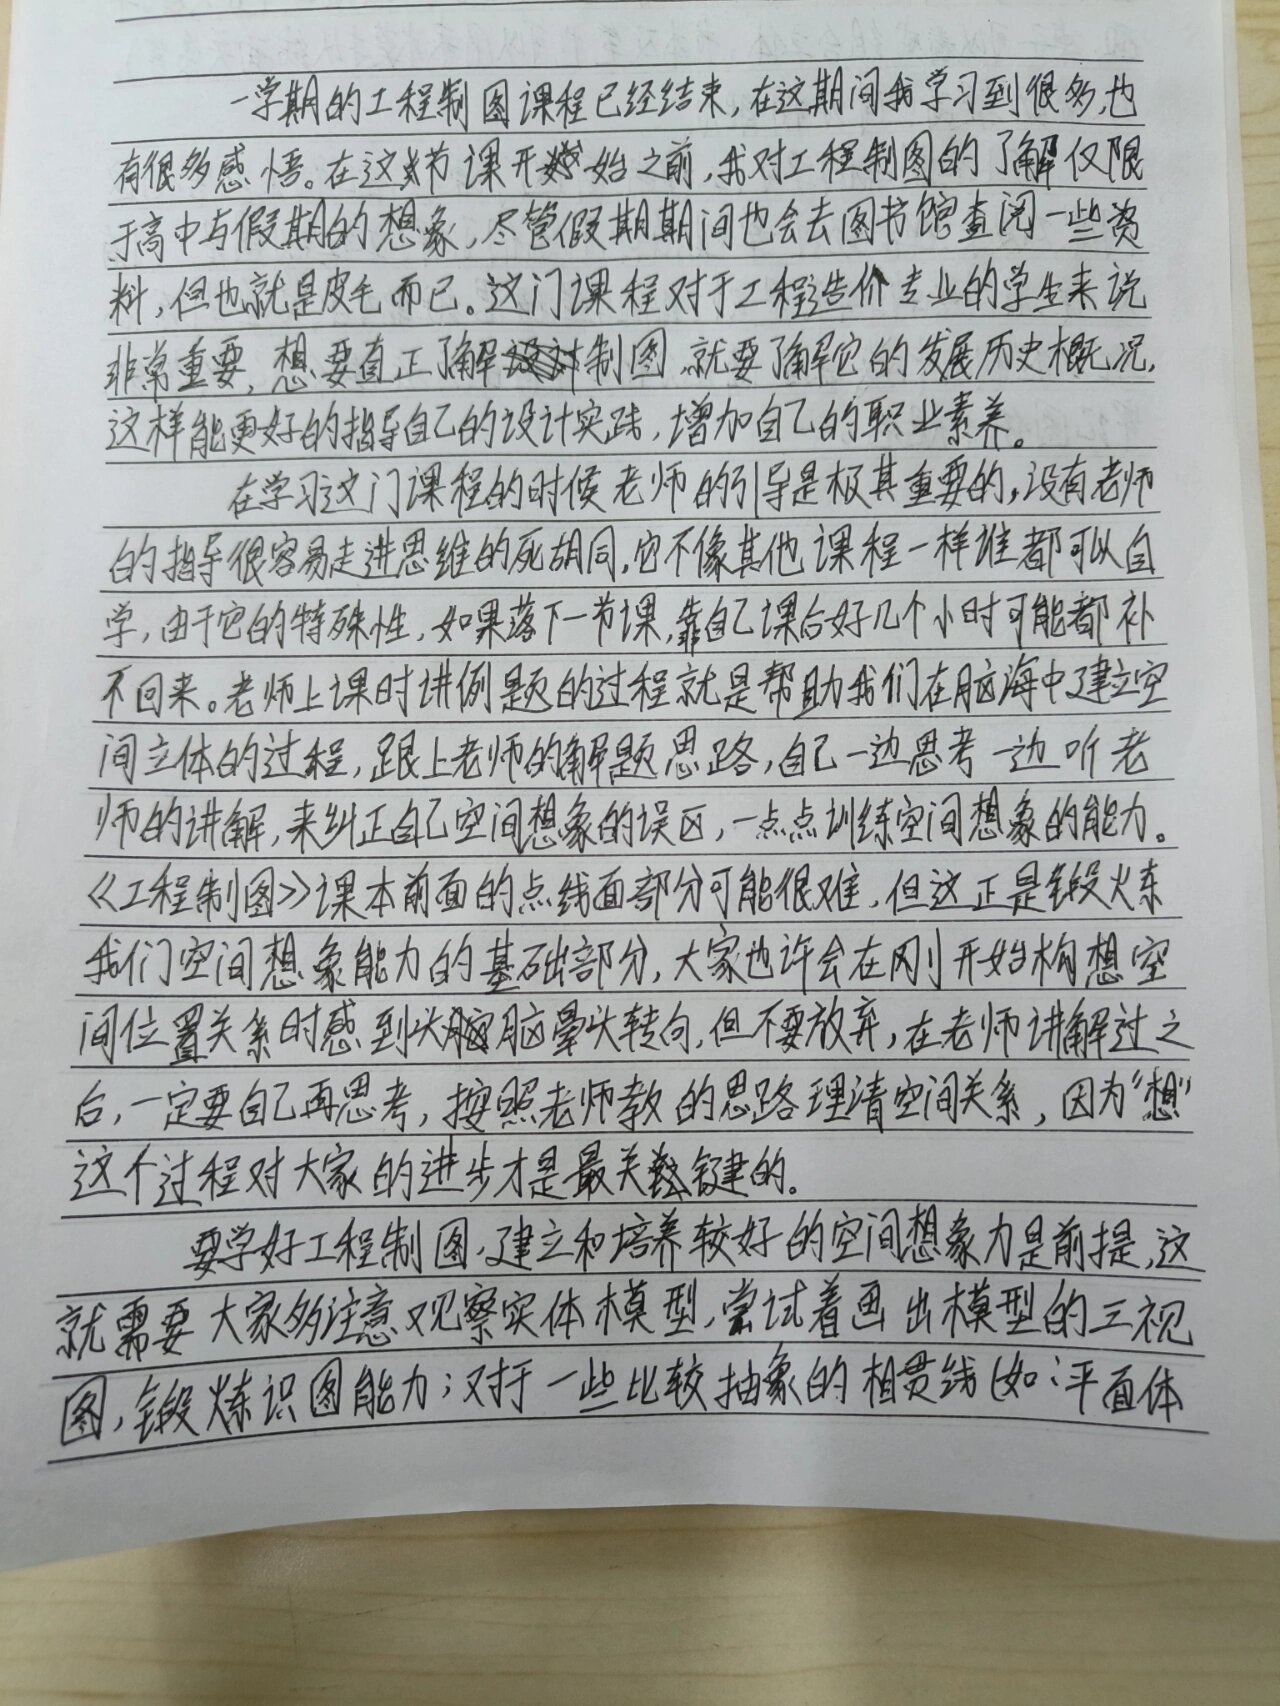 一学期的工程制图课程已经结束，在这期间我学习到很多，也
有很多感悟。在这节课开始之前，我对工程制图的了解仅限
于高中与假期的想象，尽管假期期间也会去图书馆查阅一些资
料，但也就是皮毛而已。这门课程对于工程造价专业的学生来说
非常重要，想要真正了解制图，就要了解它的发展历史概况，
这样能更好的指导自己的设计实践，增加自己的职业素养。
在学习这门课程的时候老师的引导是极其重要的，没有老师
的指导很容易走进思维的死胡同，它不像其他课程一样谁都可以自
学，由于它的特殊性，如果落下一节课，靠自己课后好几个小时可能都补
不回来。老师上课时讲例题的过程就是帮助我们在脑海中建立空
间立体的过程，跟上老师的解题思路，自己一边思考一边听老
师的讲解，来纠正自己空间想象的误区，一点点训练空间想象的能力。
《工程制图》课本前面的点线面部分可能很难，但这正是锻炼
我们空间想象能力的基础部分，大家也许会在刚开始构想空
间位置关系时感到头脑晕头转向，但不要放弃，在老师讲解过之
后，一定要自己再思考，按照老师教的思路理清空间关系，因为“想”
这个过程对大家的进步才是最关键的。
要学好工程制图，建立和培养较好的空间想象力是前提，这
就需要大家多注意观察实体模型，尝试着画出模型的三视
图，锻炼识图能力；对于一些比较抽象的相贯线（如：平面体